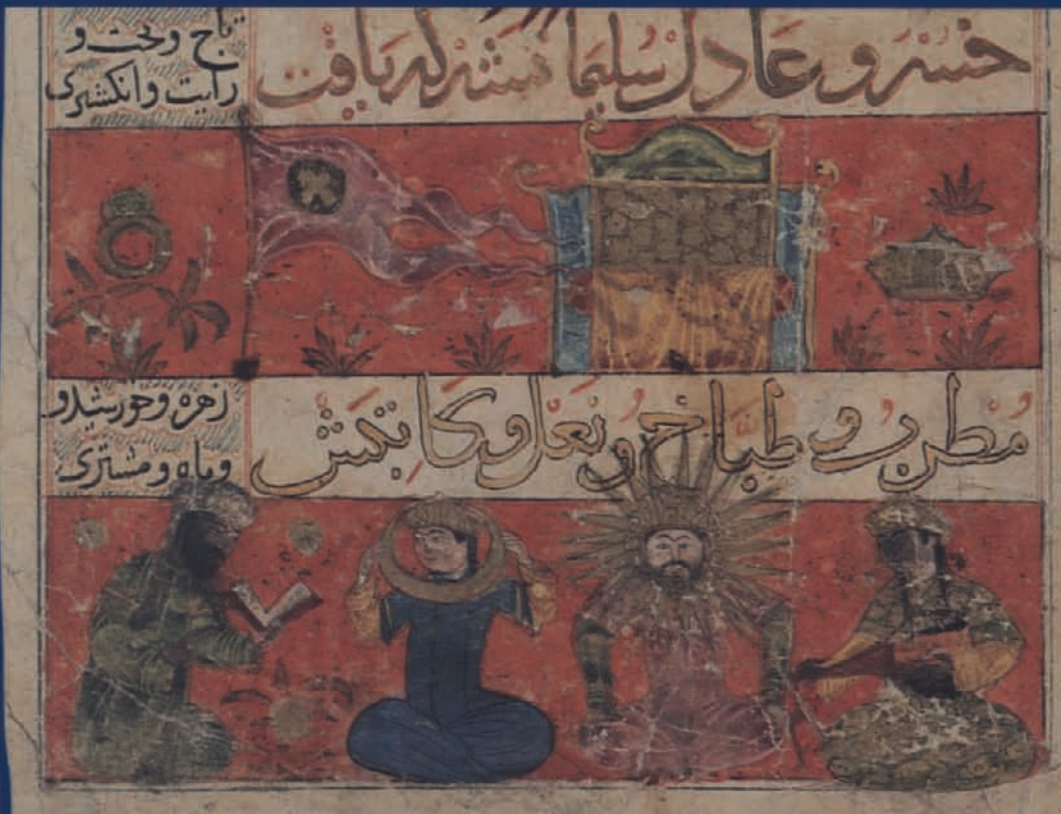 خسرو عادل سلیمان شد که یافت
تاج وتخت و
رایت وانکشتری
مطرب و طباخ و نعل و کاتبش
زهره وخورشید و
وماه ومشتری